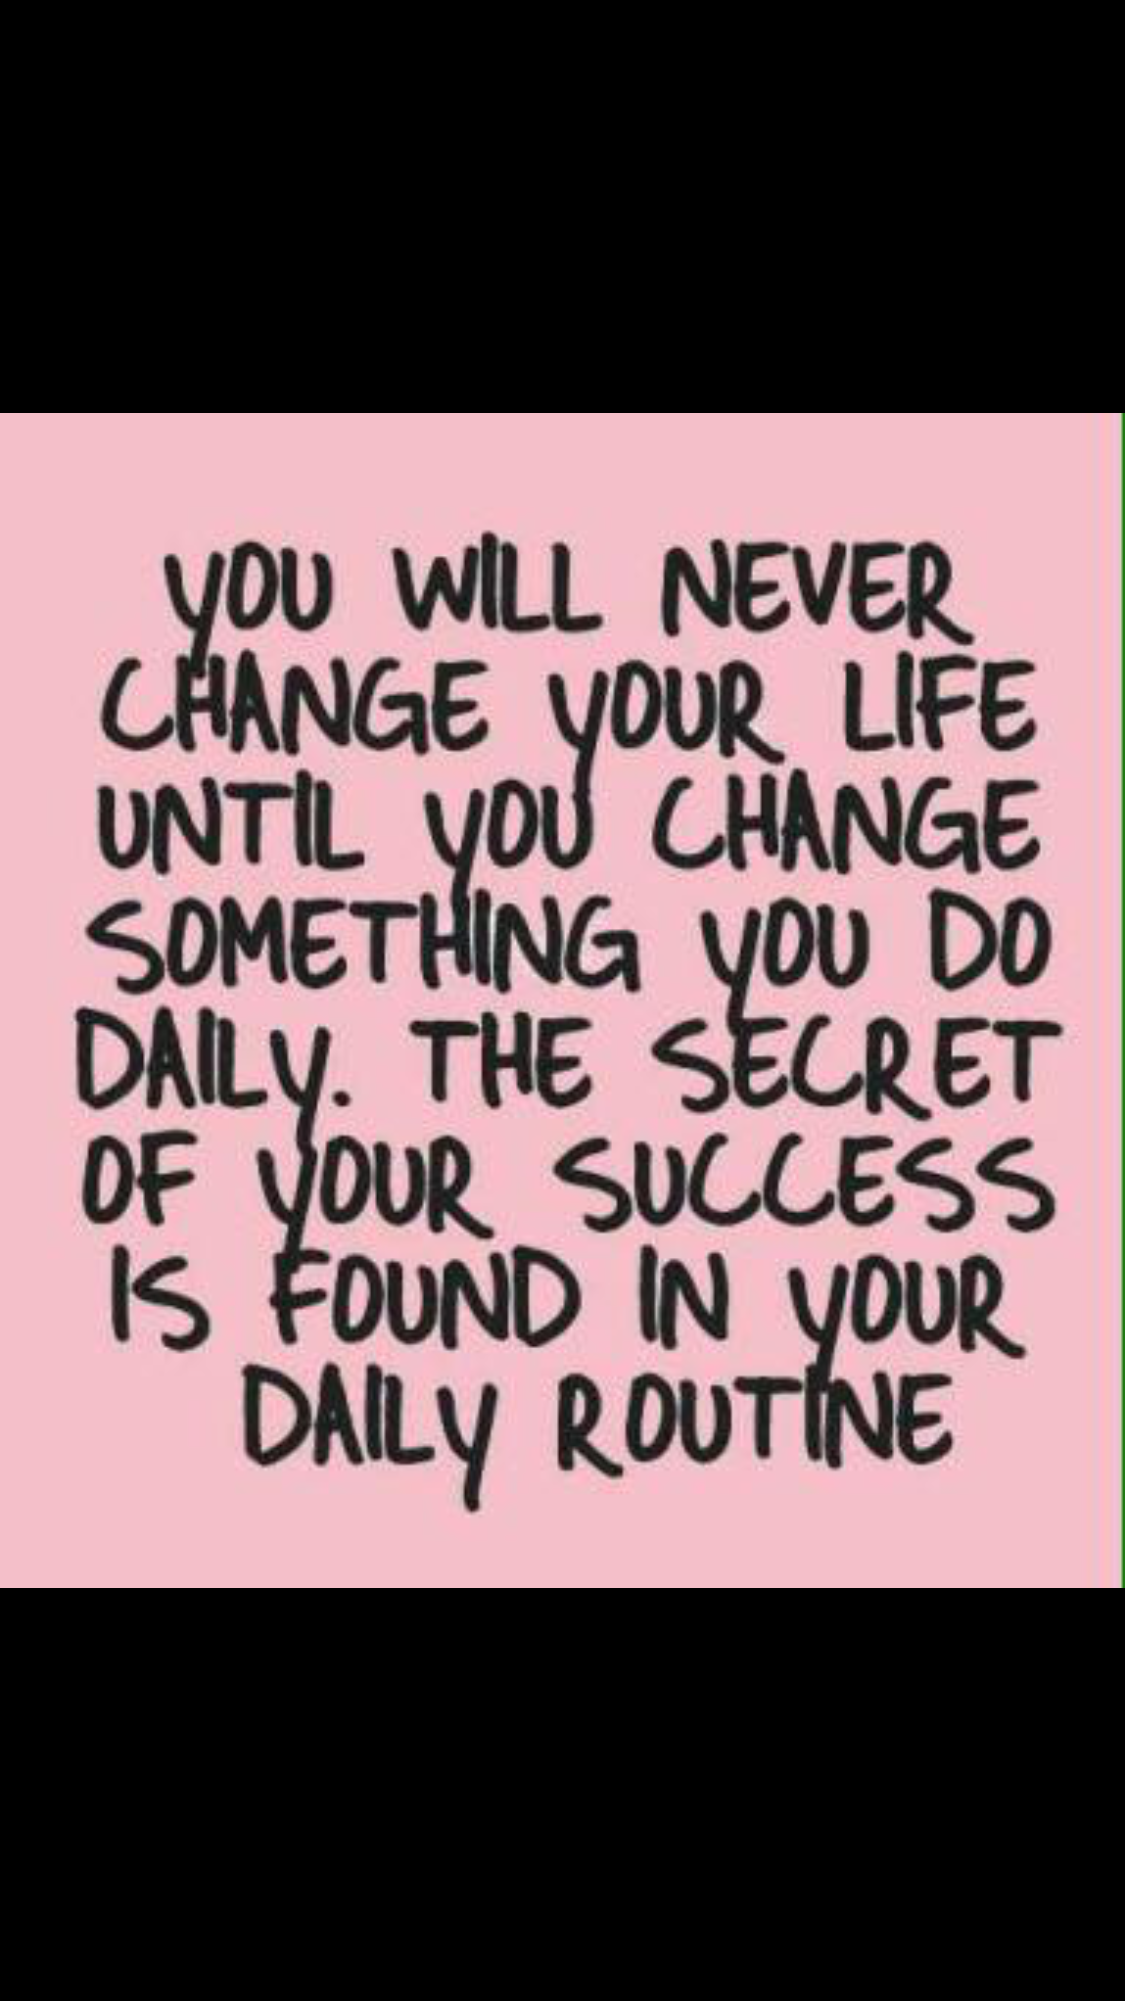 YOU WILL NEVER
CHANGE YOUR LIFE
UNTIL YOU CHANGE
SOMETHING YOU DO
DAILY. THE SECRET
OF YOUR SUCCESS
IS FOUND IN YOUR
DAILY ROUTINE